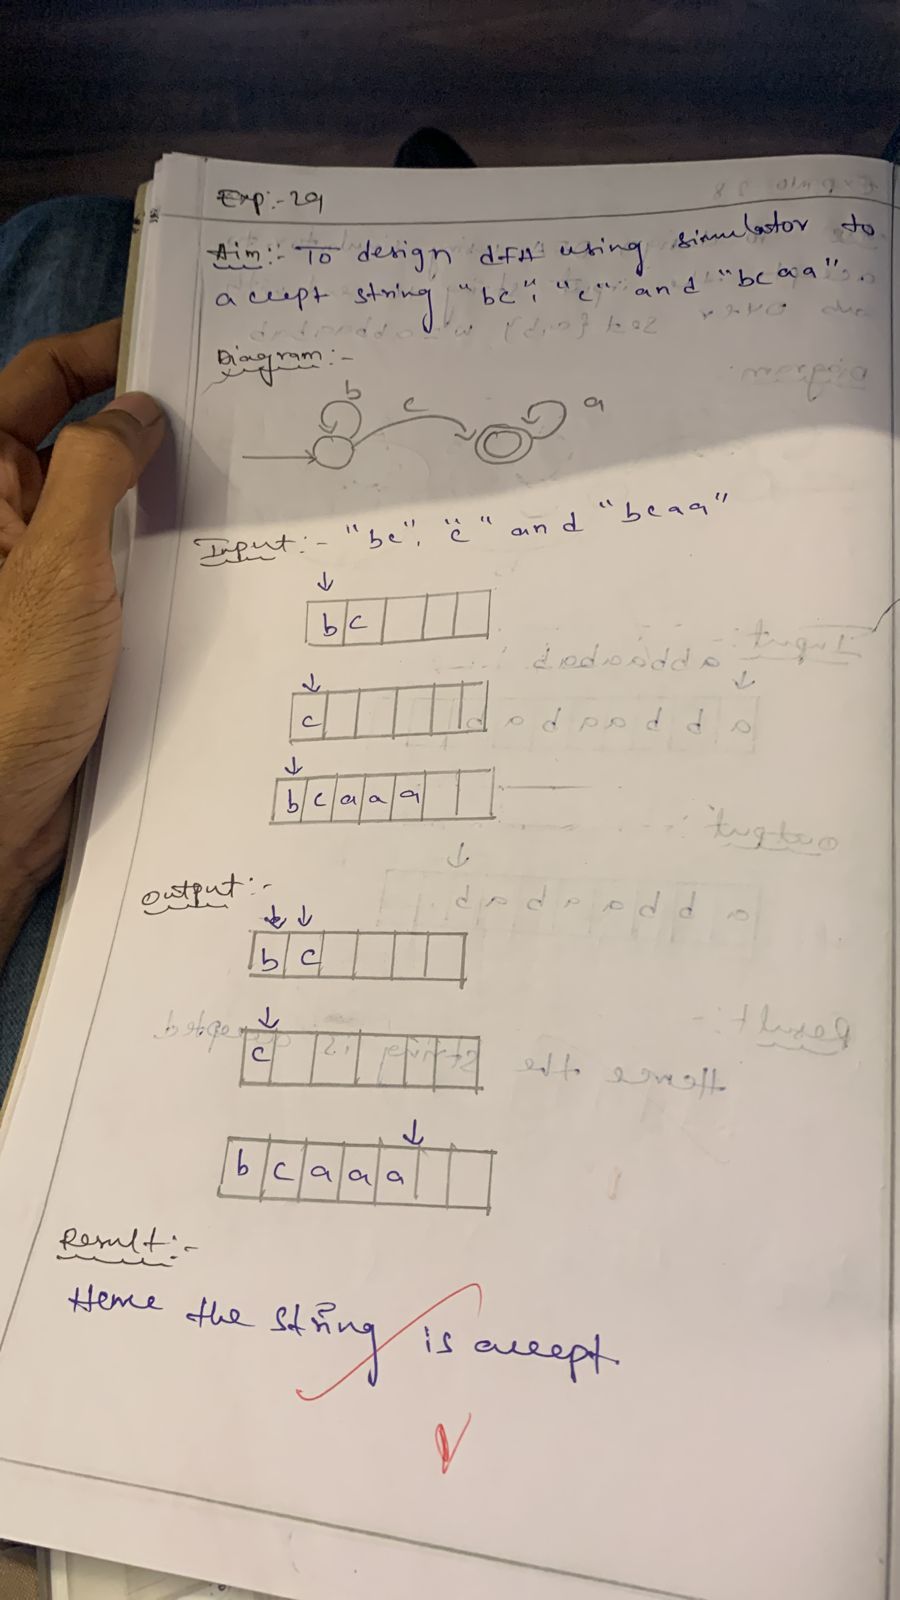 Exp:- 29
Aim:- To design dFA using simulator to
accept string "bc", "c" and "bcaa".
Diagram:-
b c a
Input:- "bc", "c" and "bcaa"
b c
c
b c a a a
Output:-
b c
c
b c a a a
Result:-
Hence the string is accept.